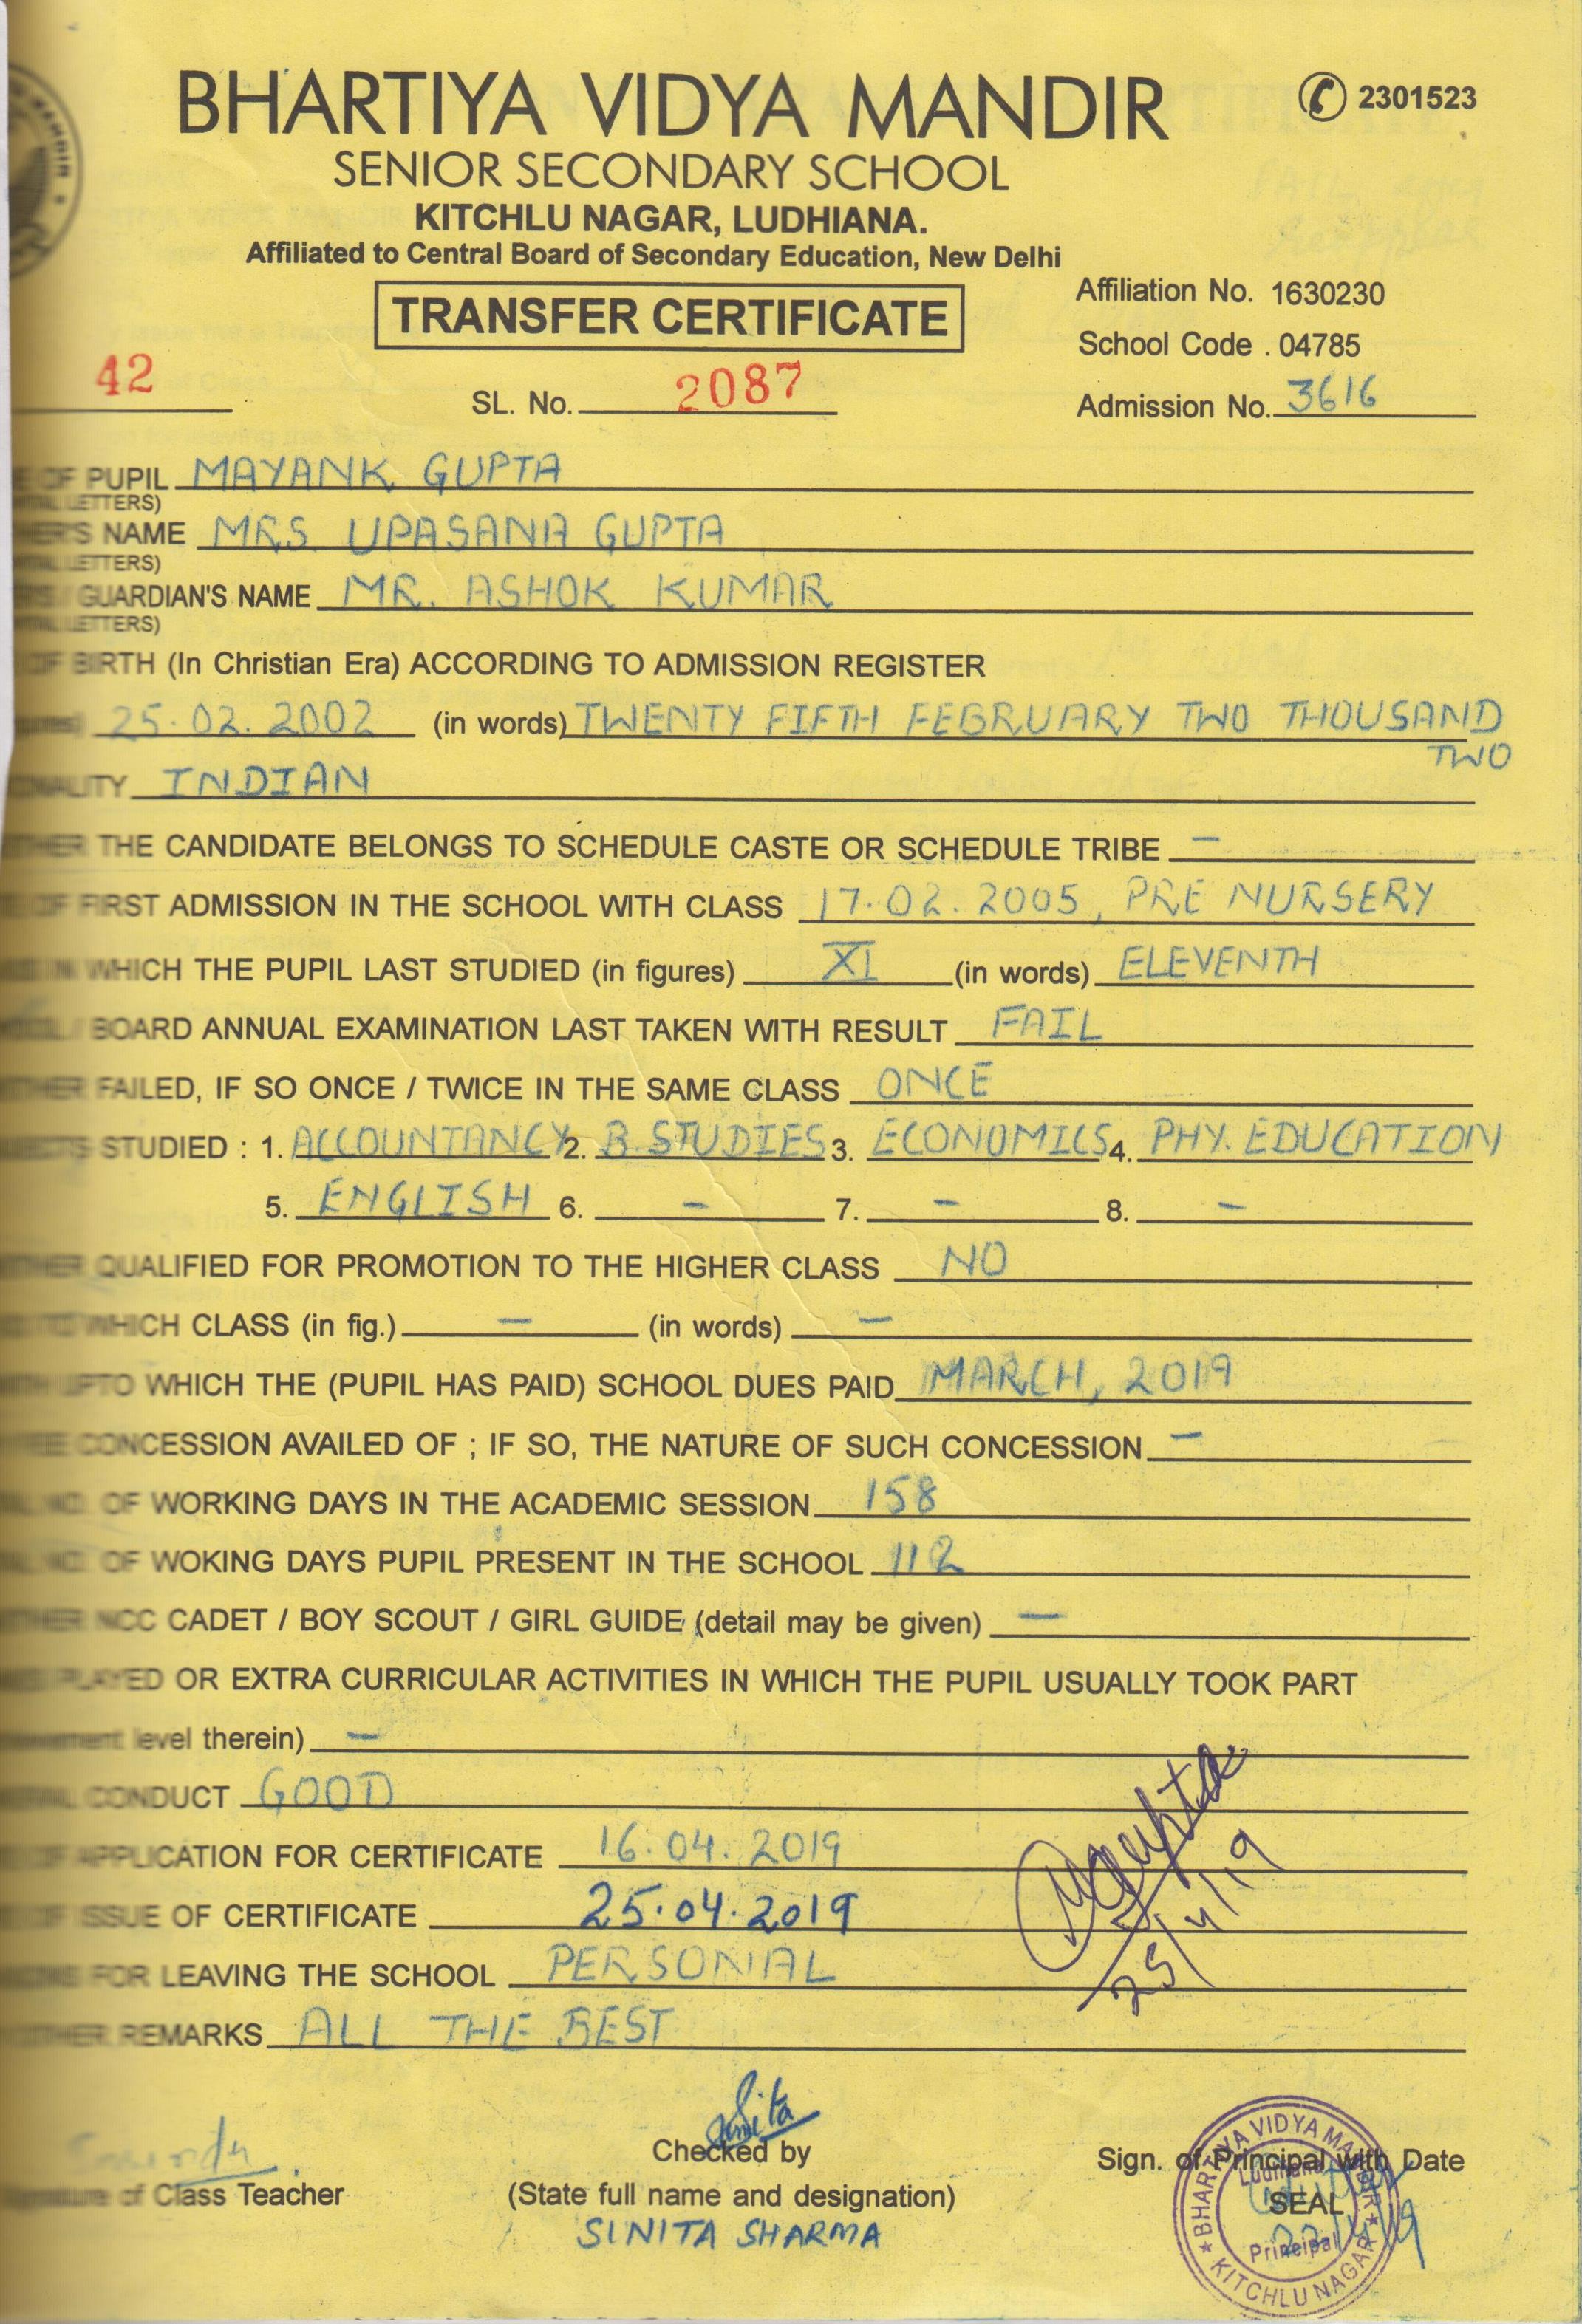 BHARTIYA VIDYA MANDIR
2301523
SENIOR SECONDARY SCHOOL
KITCHLU NAGAR, LUDHIANA.
Affiliated to Central Board of Secondary Education, New Delhi
TRANSFER CERTIFICATE
Affiliation No. 1630230
School Code . 04785
42 SL. No. 2087 Admission No. 3616
OF PUPIL MAYANK GUPTA
LETTERS)
NAME MRS. UPASANA GUPTA
LETTERS)
/ GUARDIAN'S NAME MR. ASHOK KUMAR
LETTERS)
OF BIRTH (In Christian Era) ACCORDING TO ADMISSION REGISTER
25.02.2002 (in words) TWENTY FIFTH FEBRUARY TWO THOUSAND
TWO
INDIAN
THE CANDIDATE BELONGS TO SCHEDULE CASTE OR SCHEDULE TRIBE –
OF FIRST ADMISSION IN THE SCHOOL WITH CLASS 17.02.2005, PRE NURSERY
IN WHICH THE PUPIL LAST STUDIED (in figures) XI (in words) ELEVENTH
/ BOARD ANNUAL EXAMINATION LAST TAKEN WITH RESULT FAIL
FAILED, IF SO ONCE / TWICE IN THE SAME CLASS ONCE
STUDIED : 1. ACCOUNTANCY 2. B. STUDIES 3. ECONOMICS 4. PHY. EDUCATION
5. ENGLISH 6. – 7. – 8. –
QUALIFIED FOR PROMOTION TO THE HIGHER CLASS NO
WHICH CLASS (in fig.) – (in words) –
UPTO WHICH THE (PUPIL HAS PAID) SCHOOL DUES PAID MARCH, 2019
CONCESSION AVAILED OF ; IF SO, THE NATURE OF SUCH CONCESSION –
NO. OF WORKING DAYS IN THE ACADEMIC SESSION 158
NO. OF WOKING DAYS PUPIL PRESENT IN THE SCHOOL 112
NCC CADET / BOY SCOUT / GIRL GUIDE (detail may be given) –
PLAYED OR EXTRA CURRICULAR ACTIVITIES IN WHICH THE PUPIL USUALLY TOOK PART
level therein) –
CONDUCT GOOD
APPLICATION FOR CERTIFICATE 16.04.2019
ISSUE OF CERTIFICATE 25.04.2019
25/4/19
FOR LEAVING THE SCHOOL PERSONAL
REMARKS ALL THE BEST
Checked by
Sign. of Principal with Date
of Class Teacher
(State full name and designation)
SEAL
SUNITA SHARMA
BHARTIYA VIDYA MANDIR
Ludhiana
Principal
KITCHLU NAGAR